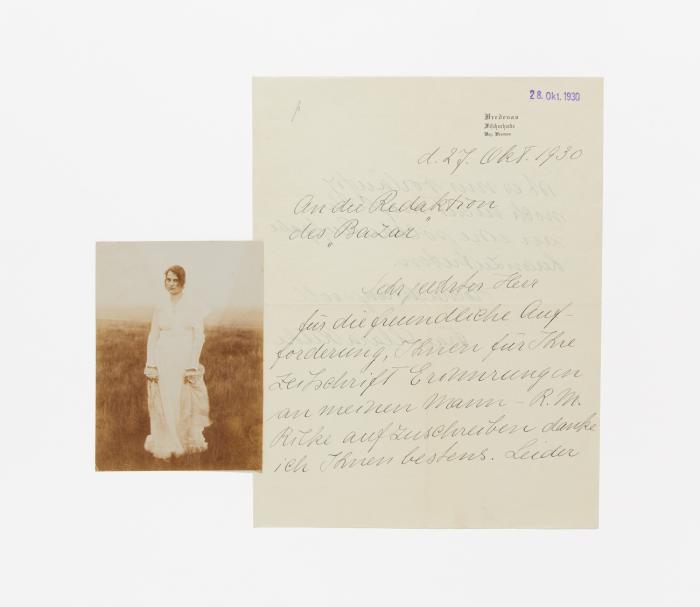 28. Okt. 1930
Bredenau
Fischerhude
Bez. Bremen
d. 27. Okt. 1930
An die Redaktion
des „Bazar"
Sehr geehrter Herr
für die freundliche Auf-
forderung, Ihnen für Ihre
Zeitschrift Erinnrungen
an meinen Mann – R. M.
Rilke aufzuschreiben danke
ich Ihnen bestens. Leider